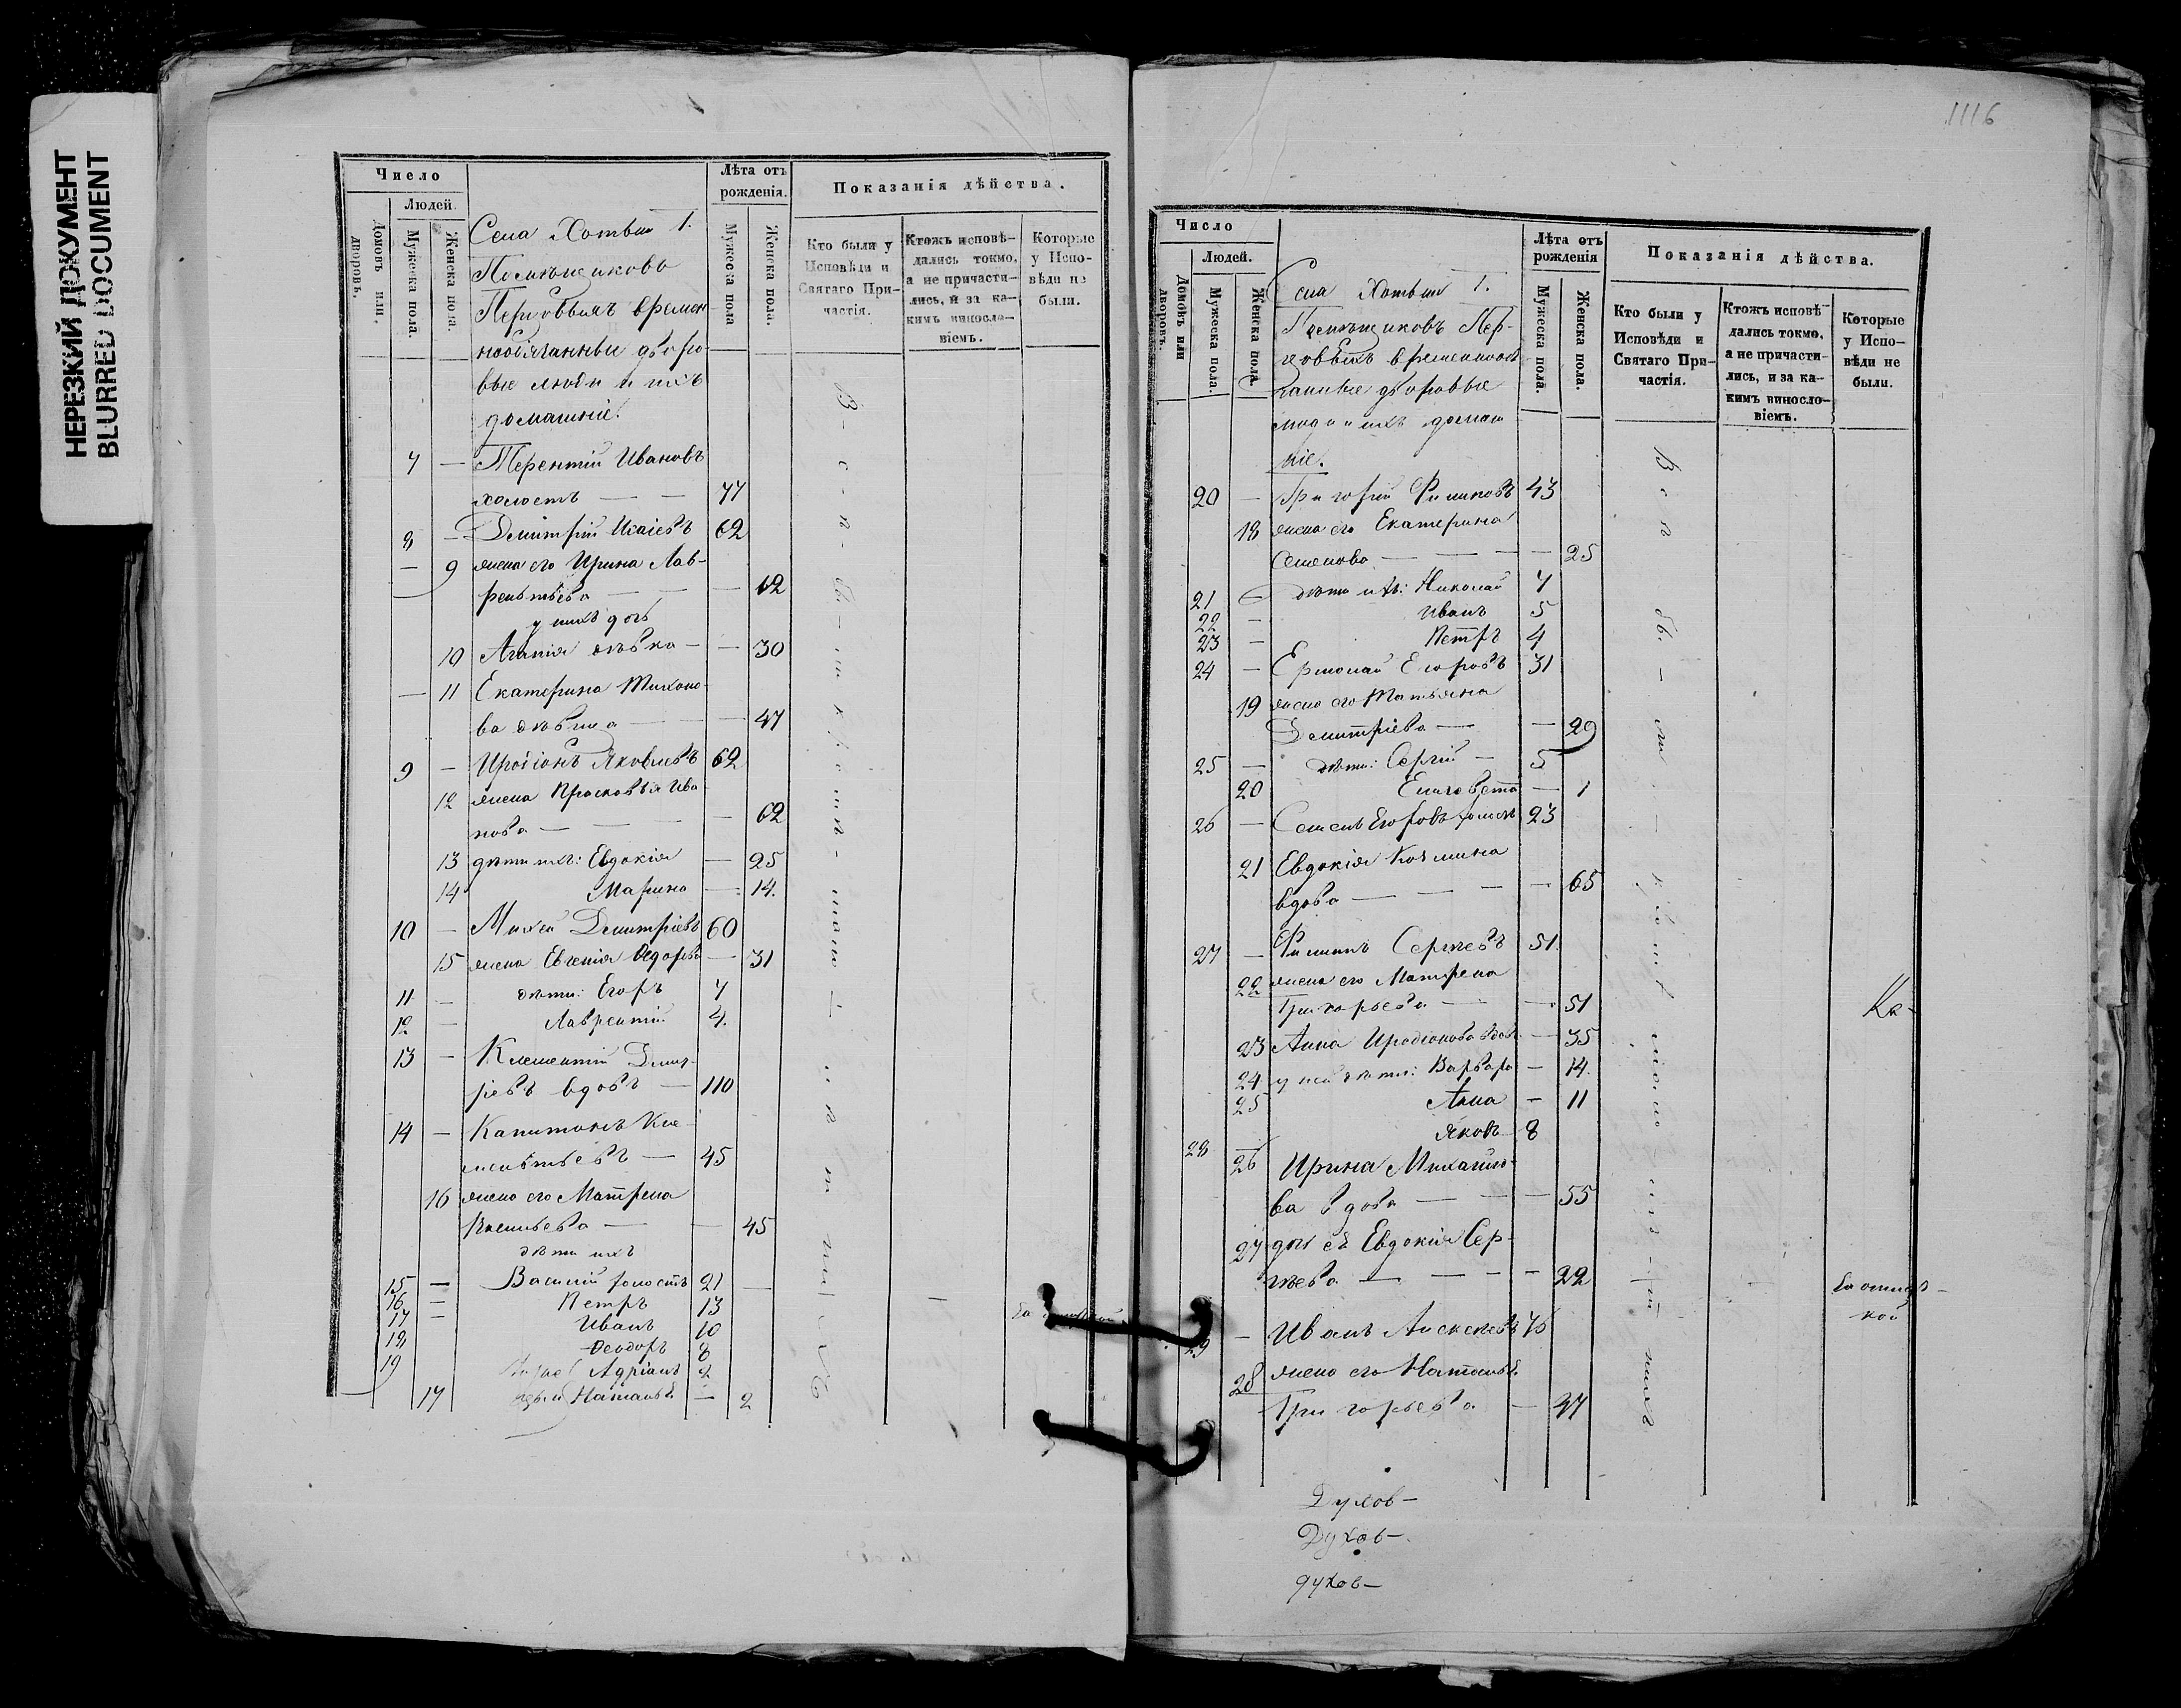 НЕРЕЗКИЙ ДОКУМЕНТ
BLURRED DOCUMENT
Число
Людей.
Домовъ или дворовъ.
Мужеска пола.
Женска пола.
Лѣта отъ рожденія.
Мужеска пола
Женска пола.
Показанія дѣйства.
Кто были у Исповѣди и Святаго Причастія.
Ктожъ исповѣдались токмо, а не причастились, и за какимъ винословіемъ.
Которые у Исповѣди не были.
Села 1.
Помѣщиковъ
времен-
дворо-
вые люди и ихъ
домашніе.
7 — Терентій Ивановъ
холостъ — — 77
8 — Димитрій Исаіевъ 62
— 9 жена его Ирина Лав-
рентьева — — — 62
у нихъ дочь
10 Агапія дѣвка — — 30
— 11 Екатерина Тихоно-
ва дѣвица — — — 47
9 — Иродіонъ Яковлевъ 62
12 жена Прасковья Ива-
нова — — — 62
13 дѣти ихъ: Евдокія — 25
14 Марина — 14.
10 — Михей Димитріевъ 60
15 жена Евгенія Ѳедорова — 31
11 — дѣти: Егоръ 7
12 — Лаврентій 4.
13 — Климентій Дмит-
ріевъ вдовъ — 110
14 — Капитонъ Кле-
ментьевъ — 45
16 жена его Матрена
Васильева — — 45
дѣти ихъ
15 — Василій холостъ 21 —
16 — Петръ 13
17 — Иванъ 10
18 Ѳеодоръ 8
19 Адріанъ 2
17 Наталья — 2
1116
Число
Людей.
Домовъ или дворовъ.
Мужеска пола.
Женска пола.
Лѣта отъ рожденія
Мужеска пола.
Женска пола.
Показанія дѣйства.
Кто были у Исповѣди и Святаго Причастія.
Ктожъ исповѣдались токмо, а не причастились, и за какимъ винословіемъ.
Которые у Исповѣди не были.
Села 1.
Помѣщиковъ
дворовые
люди и ихъ домаш-
ніе.
20 — Григорій Филиповъ 43
18 жена его Екатерина
Семенова — — — — 25
21 — дѣти ихъ: Николай 7
22 — Иванъ 5
23 — Петръ 4
24 — Ермолай Егоровъ 31
19 жена его Татьяна
Димитріева — — 29
25 — дѣти: Сергій — 5
20 Елизавета — 1
26 — Семенъ Егоровъ холостъ 23
21 Евдокія Козмина
вдова — — — — 65
27 — Филиппъ Сергѣевъ 51.
22 жена его Матрена
Григорьева — — 51
23 Анна Иродіонова вдова — 35
24 у ней дѣти: Варвара — 14.
25 Анна — 11
28 — Яковъ — 8
26 Ирина Михайло-
ва вдова — — — 55
27 дочь ея Евдокія Сер-
гѣева — — — — 22
29 — Иванъ Алексѣевъ 75
28 жена его Наталья
Григорьева — 47
Духов—
Духов—
духов—